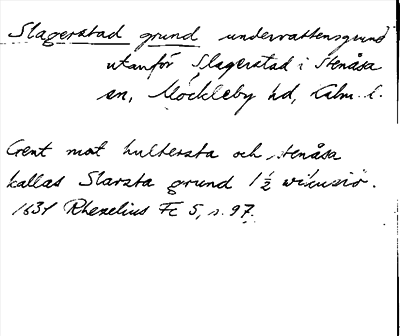 Slagerstad grund undervattensgrund
utanför Slagerstad i Stenåsa
sn, Möckleby hd, Kalm. l.
Gent mot hultersta och stenåsa
kallas Slarsta grund 1½
1634 Rhezelius Fc 5, s. 97.